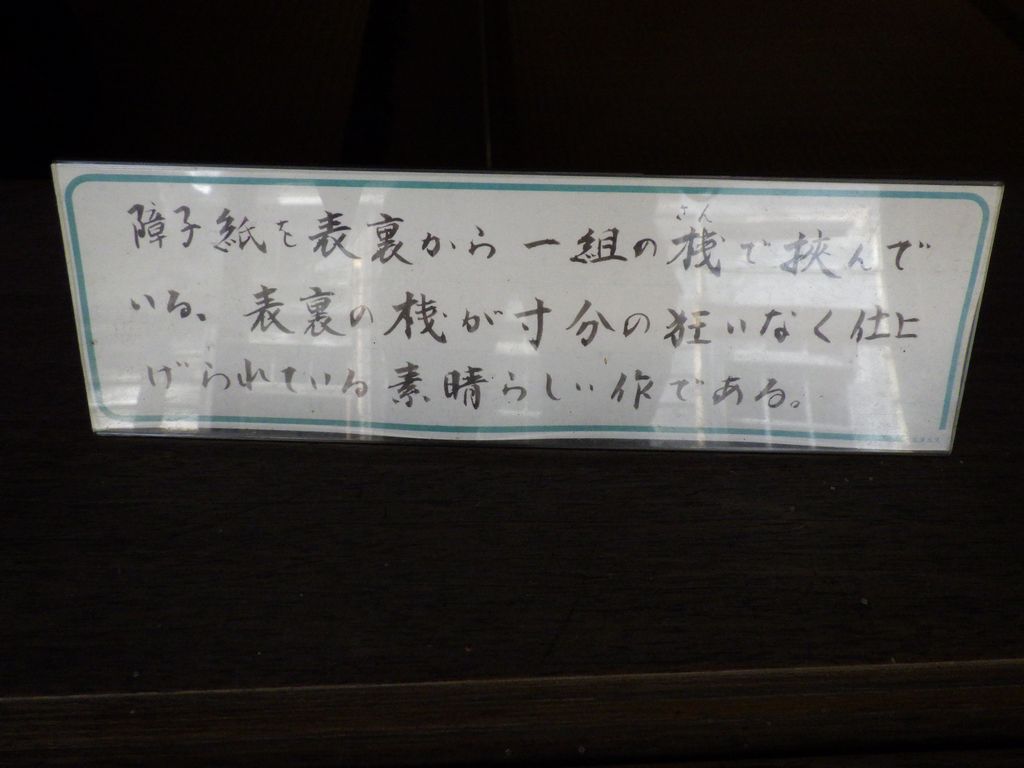 障子紙を表裏から一組の桟で挟んで
いる、表裏の桟が寸分の狂いなく仕上
げられている素晴らしい作である。